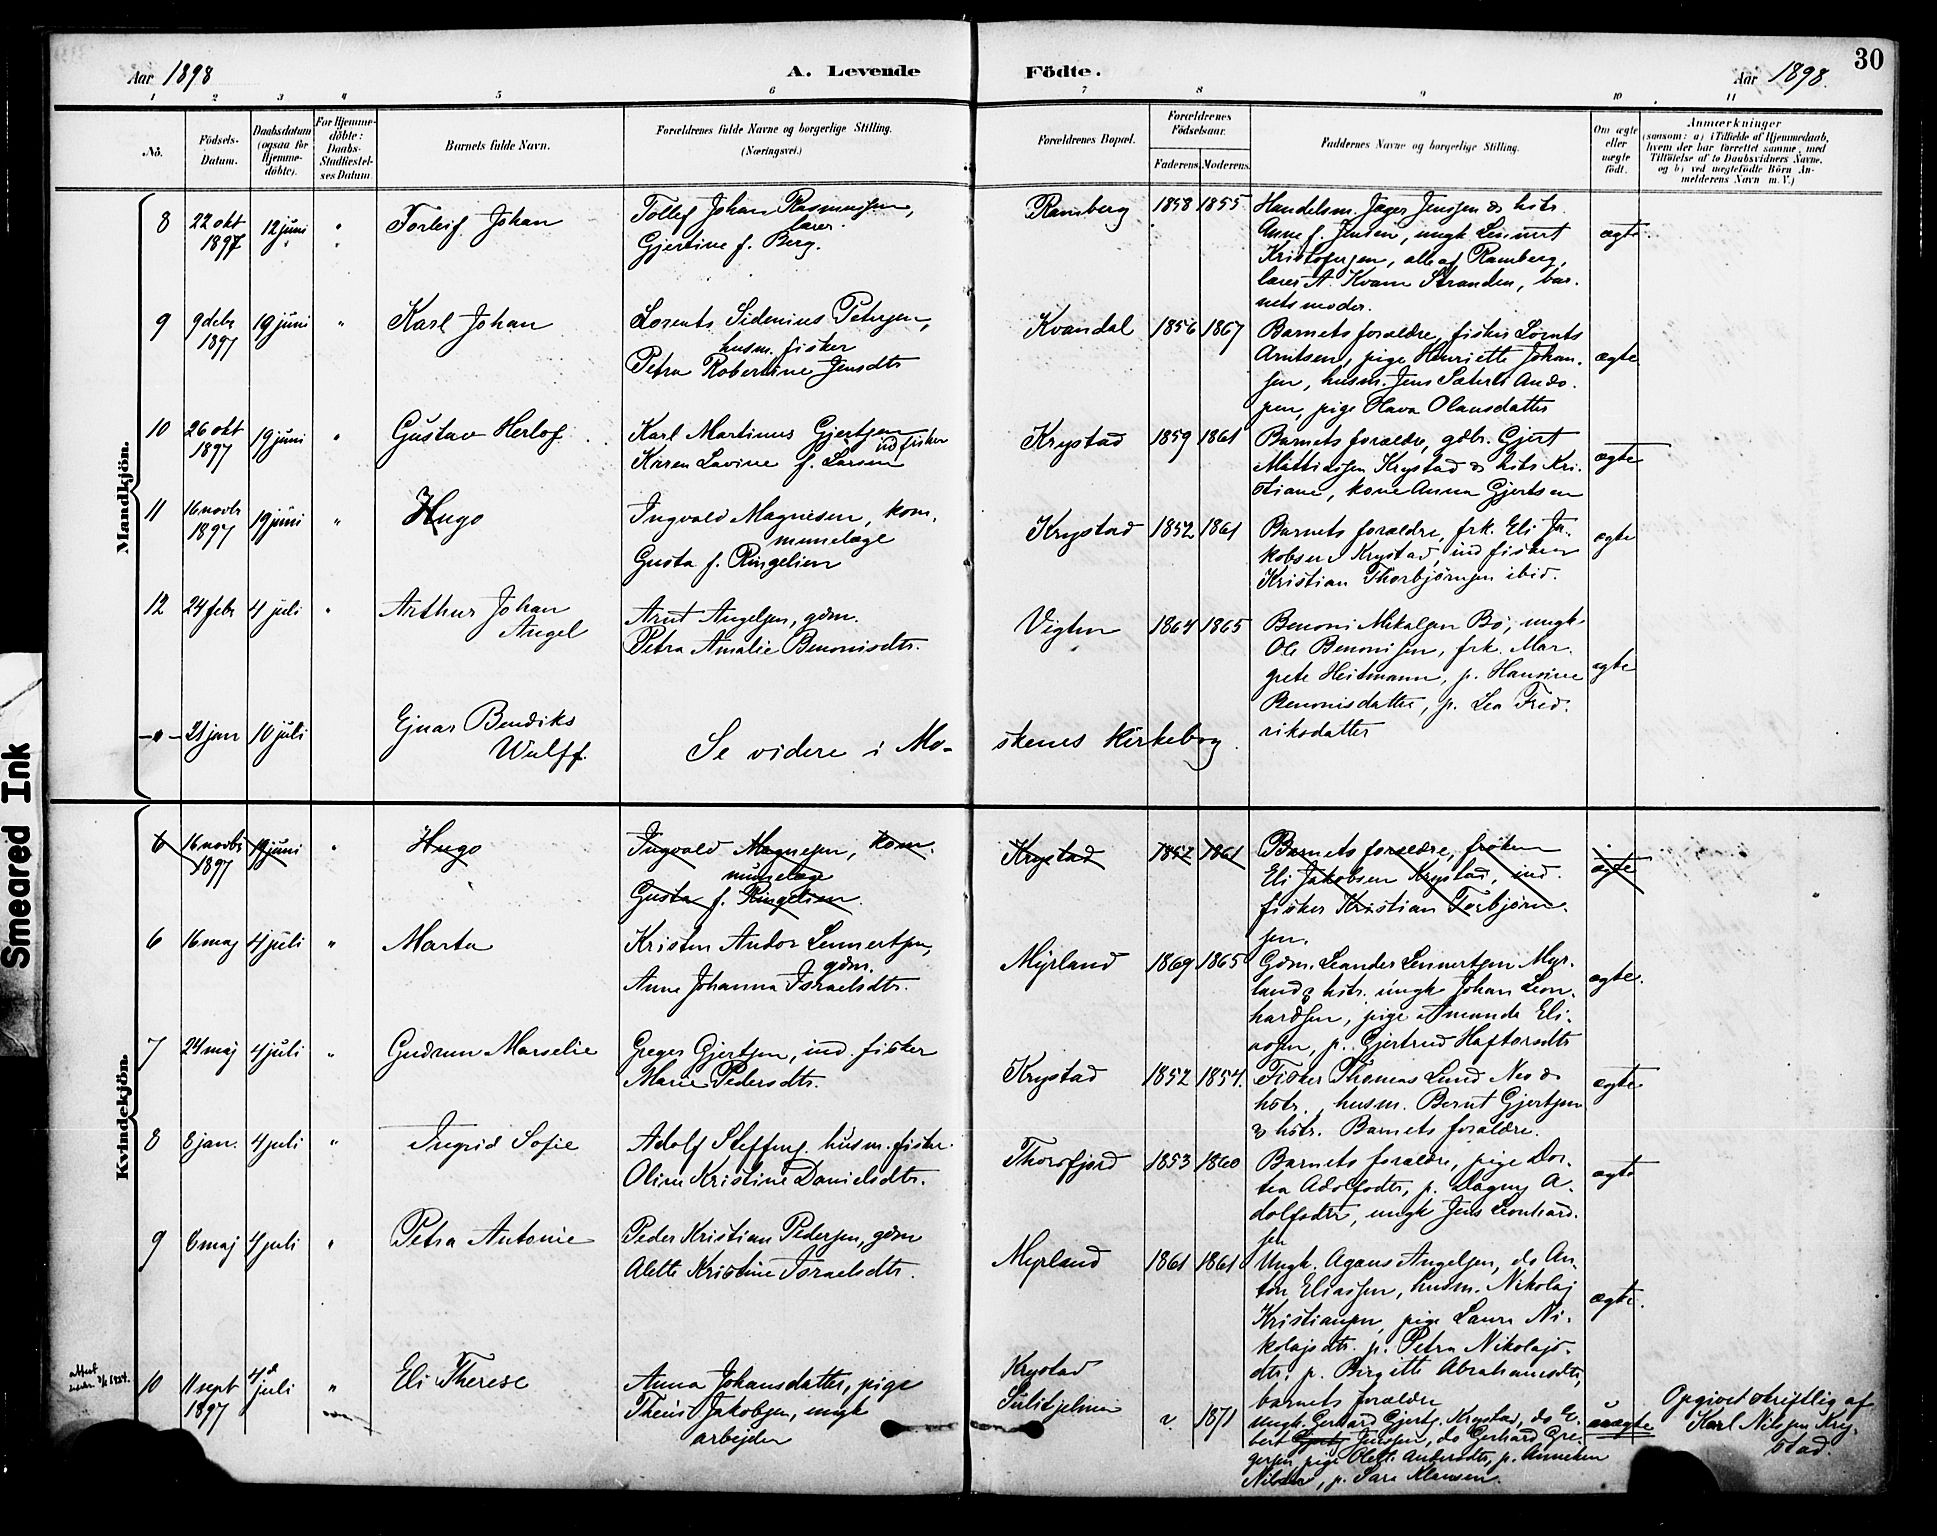 30
Aar 1898
A. Levende
Födte.
Aar 1898.
1 2 3 4 5 6 7 8 9 10 11
No.
Födsels-
Datum.
Daabsdatum
(ogsaa for
Hjemme-
döbte).
For Hjemme-
döbte:
Daabs-
Stadfæstel-
ses Datum.
Barnets fulde Navn.
Forældrenes fulde Navne og borgerlige Stilling.
(Næringsvei.)
Forældrenes Bopæl.
Forældrenes
Födselsaar.
Faderens. Moderens.
Faddernes Navne og borgerlige Stilling.
Om ægte
eller
uægte
födt.
Anmærkninger
(saasom: a) i Tilfælde af Hjemmedaab,
hvem der har forrettet samme, med
Tilföielse af to Daabsvidners Navne,
og b) ved uegtefödte Börn An-
melderens Navn m. V.)
Mandkjön.
8 22 okt 1897 12 juni " Torleif Johan
Tollef Johan Rasmussen,
lærer.
Gjertine f. Berg.
Ramberg 1858 1855
Handelsm. Jæger Jenssen & hstr.
Anne f. Jensen, ungk. Lennert
Kristofersen, alle af Ramberg,
lærer A. Kvam Stranden, bar-
nets moder.
ægte.
9 9 debr 1897 19 juni " Karl Johan
Lorents Sidenius Petersen,
husm. fisker
Petra Robertine Jensdtr
Kvandal 1856 1867
Barnets forældre, fisker Lornts
Arntsen, pige Henriette Johan-
sen, husm. Jens Sakrts Ando-
sen, pige Olava Olausdatter
ægte
10 26 okt 1897 19 juni " Gustav Herlof
Karl Martinus Gjertsen
ind fisker
Karen Lavine f. Larsen
Krystad 1859 1861
Barnets forældre, gdbr. Gjert
Mattissen Krystad & hstr Kri-
stiane, kone Anna Gjertsen
ægte
11 16 novbr 1897 19 juni " Hugo
Ingvald Magnesen, kom-
munelæge
Gusta f. Ringelien
Krystad 1852 1861
Barnets forældre, frk. Eli Ja-
kobsen Krystad, ind fisker
Kristian Thorbjørnsen ibid.
ægte
12 24 febr 4 juli " Arthur Johan
Angel
Arnt Angelsen, gdm.
Petra Amalie Benonisdtr.
Vigten 1864 1865
Benoni Mikalsen Bø, ungk.
Ole Benonisen, frk. Mar-
grete Heitmann, p. Hansine
Benonisdatter, p. Lea Fred-
riksdatter
ægte
-"- 21 jan 10 juli Ejnar Bendiks
Wulff.
Se videre i Mo-
skenes Kirkebog.
Kvindekjön.
6 16 novbr 1897 19 juni " Hugo
Ingvald Magnesen, kom-
munelæge
Gusta f. Ringelien.
Krystad 1852 1861
Barnets forældre, frøken
Eli Jakobsen Krystad, ind.
fisker Kristian Torbjørn-
sen.
ægte
6 16 maj 4 juli " Marta
Kristen Andor Lennertsen,
gdm.
Anne Johanna Israelsdtr.
Myrland 1869 1865
Gdm. Leander Lennertsen Myr-
land & hstr. ungk Johan Leon-
hardsen, pige Amanda Eli-
asen, p. Gjertrud Haftorsdtr
ægte.
7 24 maj 4 juli " Gudrun Marselie
Greger Gjertsen, ind. fisker
Marie Pedersdtr.
Krystad 1852 1854.
Fisker Thomas Lund Nes &
hstr., husm. Bernt Gjertsen
& hstr. Barnets forældre.
ægte
8 8 jan. 4 juli " Ingrid Sofie
Adolf Steffens. husm. fisker.
Oline Kristine Danielsdtr.
Thorsfjord 1853 1860
Barnets forældre, pige Dor-
tea Adolfsdtr, p. Dagny A-
dolfsdtr, ungk Jens Leonhard-
sen
ægte
9 6 maj 4 juli " Petra Antonie
Peder Kristian Pedersen, gdm
Alette Kristine Israelsdtr.
Myrland 1861 1861
Ungk. Aganus Angelsen, do An-
ton Eliassen, husm. Nikolaj
Kristiansen, pige Laura Ni-
kolajsdtr. p. Petra Nikolajs-
dtr, p. Birgitte Abrahamsdtr,
barnets forældre
ægte.
10 11 sept 1897 4de juli " Eli Therese
Anna Johansdatter, pige
Theus Jakobsen, ungk
arbejder
Krystad
Sulitjelma
" 1871
Ungk. Gerhard Gjerts. Krystad, do E-
bert Jenssen, do Gerhard Gre-
gersen, pige Olett. Andersdtr, p. Anneken
Nilsen, p. Sara Klausen.
uægte
Opgivet skriftlig af
Karl Nilssen Kry-
stad.
Smeared Ink